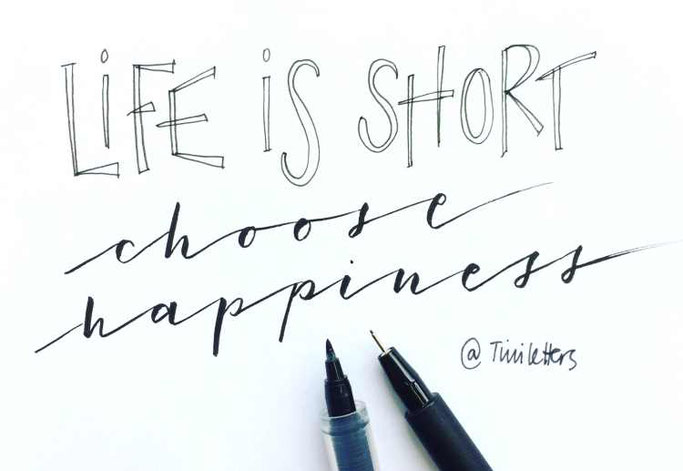 LiFE iS SHORT
choose
happiness
@Tiniletters